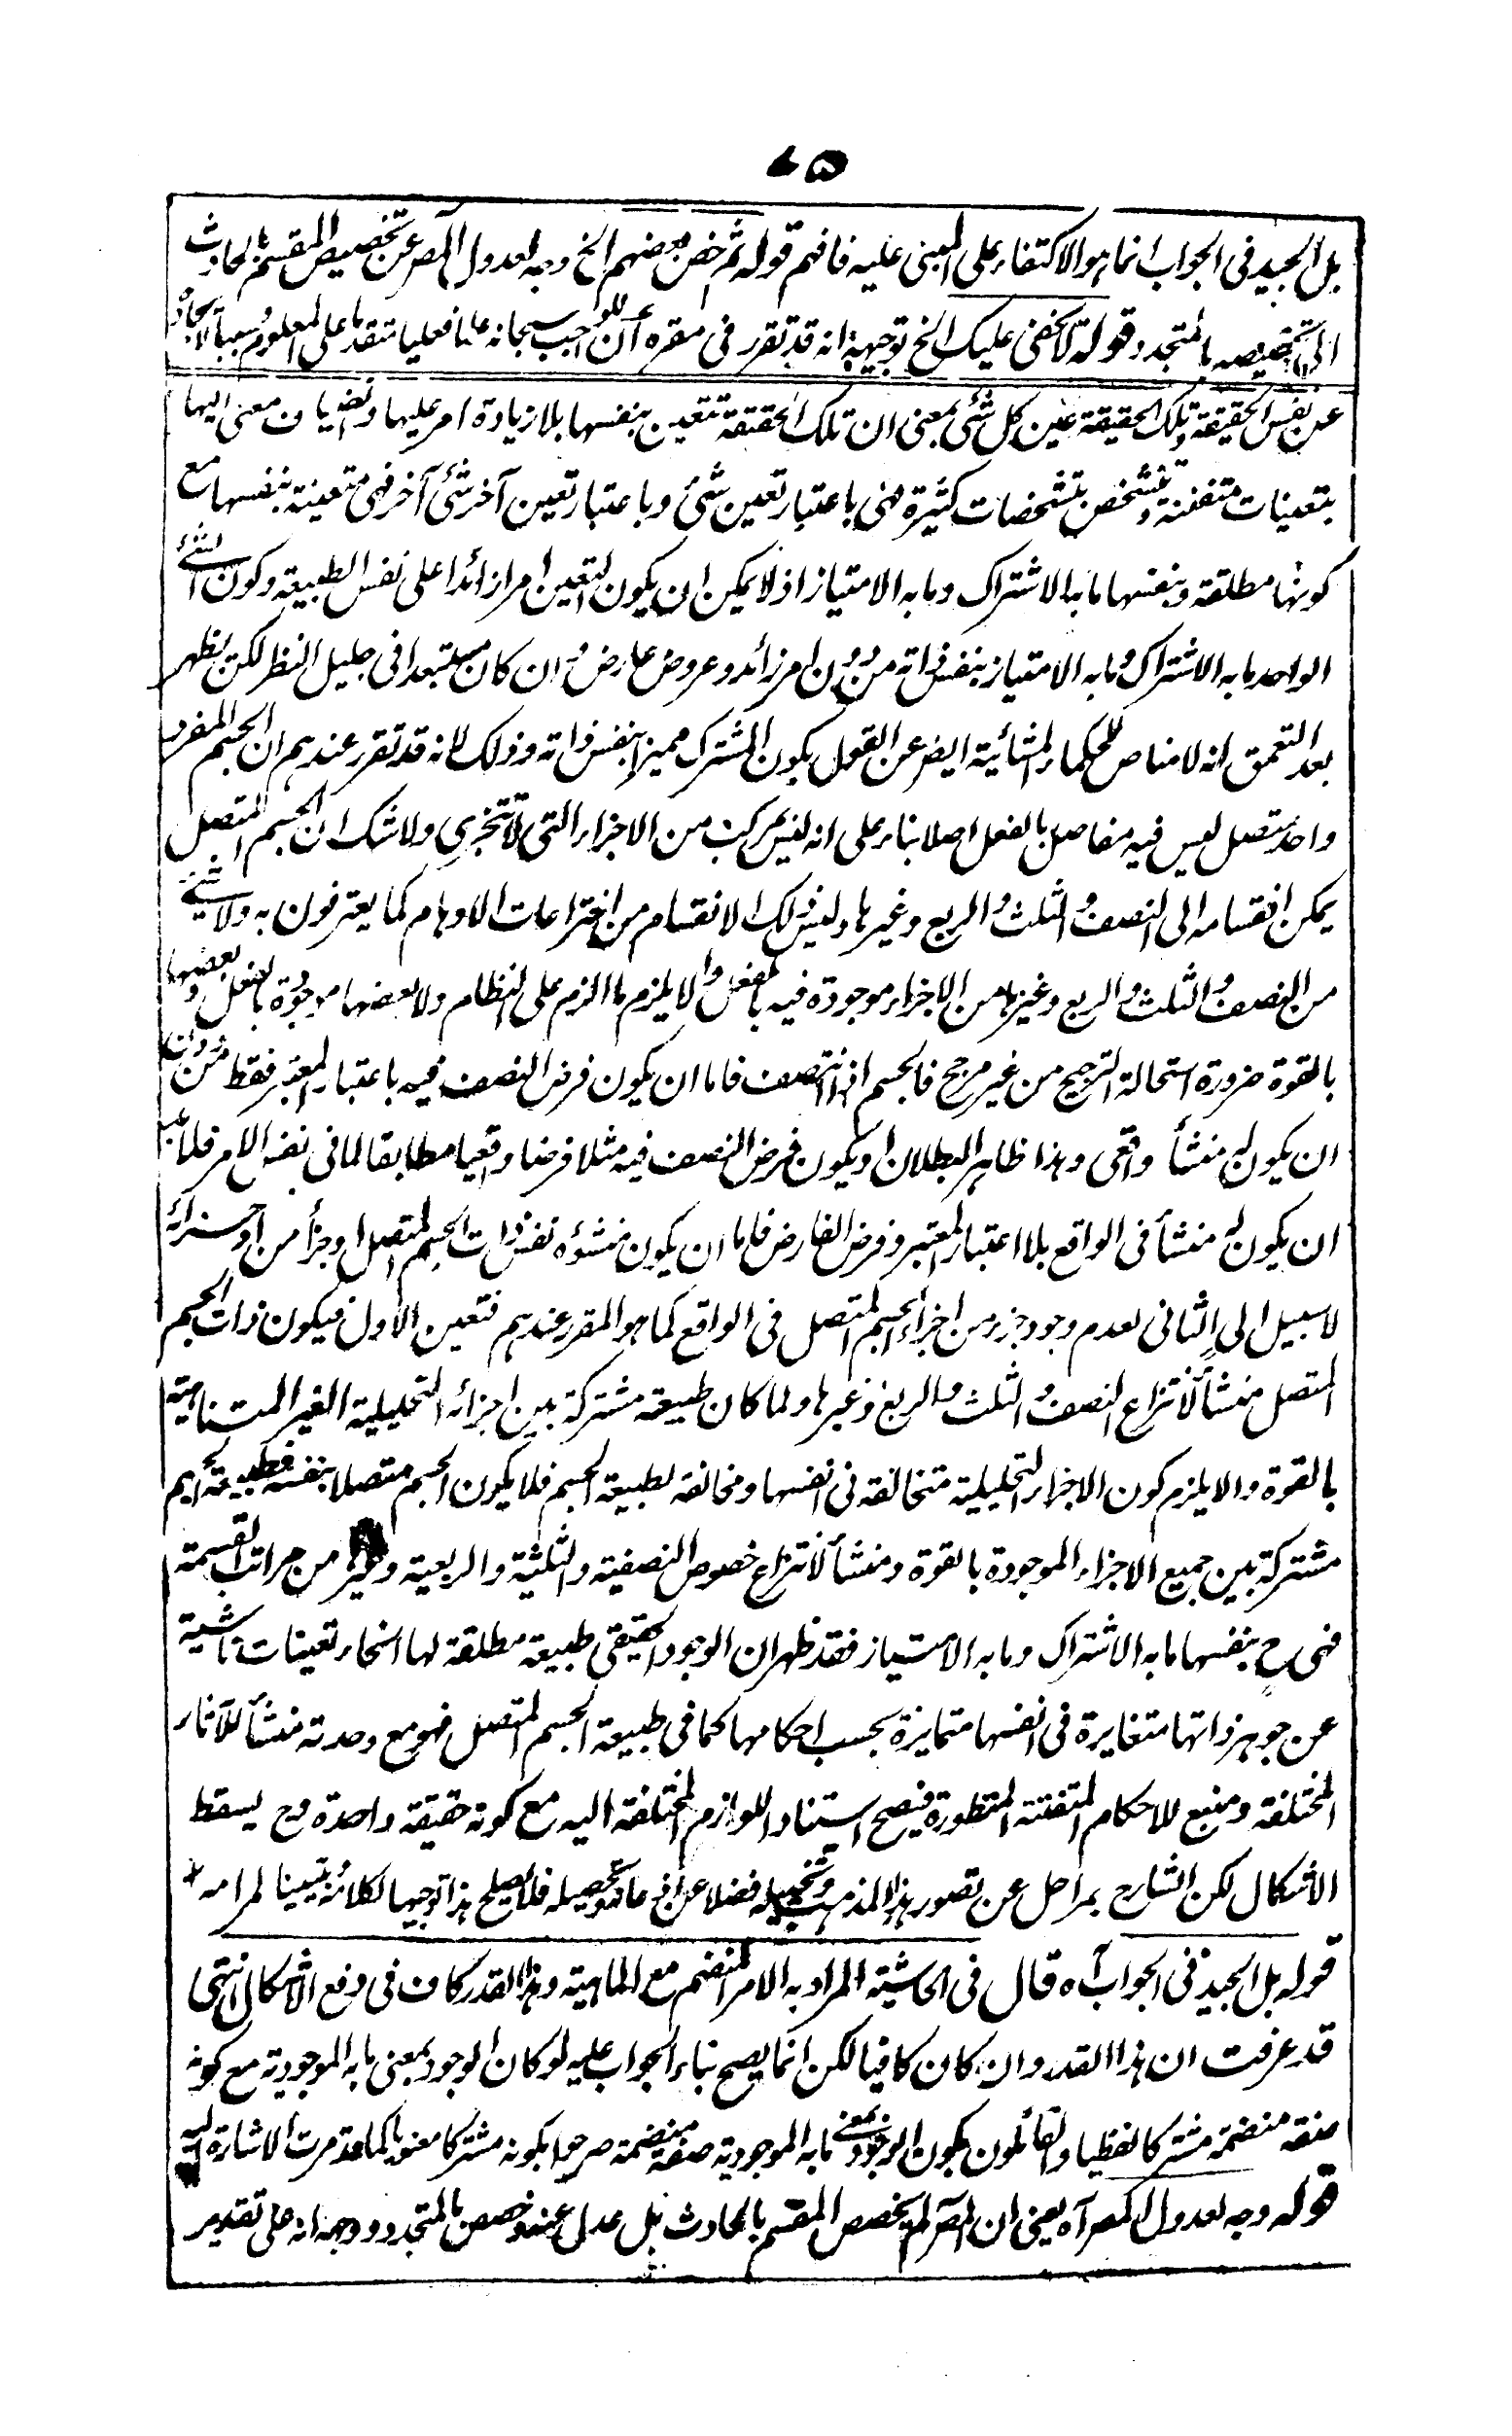 ٤٥
بل الجيد فى الجواب انما هو الاكتفاء على المبنى عليه فافهم قوله ثم خص بعضهم الخ وجه لعدول المصر عن تخصيص المقسم بالحادث
الى تخصيصه بالمتجدد قوله لا يخفى عليك الخ توجيهه انه قد تقرر فى مقره ان للواجب سبحانه علما فعليا متقدما على المعلوم سببا لايجاد
عن نفس الحقيقة وتلك الحقيقة عين كل شئ بمعنى ان تلك الحقيقة تتعين بنفسها بلا زيادة امر عليها وانضياف معنى اليها
بتعينات متفننة وتتشخص بتشخصات كثيرة فهى باعتبار تعين شئ وباعتبار تعين آخر شئ آخر فهى متعينة بنفسها مع
كونها مطلقة وبنفسها ما به الاشتراك وما به الامتياز اذ لا يمكن ان يكون التعين امرا زائدا على نفس الطبيعة وكون الشئ
الواحد ما به الاشتراك وما به الامتياز بنفس ذاته من دون امر زائد وعروض عارض وان كان مستبعدا فى جليل النظر لكن يظهر
بعد التعمق انه لا مناص للحكماء المشائية ايضر عن القول بكون المشترك مميزا بنفس ذاته وذلك لانه قد تقرر عندهم ان الجسم المفرد
واحد متصل ليس فيه مفاصل بالفعل اصلا بناء على انه ليس بمركب من الاجزاء التى لا تتجزى ولا شك ان الجسم المتصل
يمكن انقسامه الى النصف والثلث والربع وغيرها وليس ذلك الانقسام من اختراعات الاوهام كما يعترفون به ولا شئ
من النصف والثلث والربع وغيرها من الاجزاء موجودة فيه بالفعل والا يلزم ما الزم على النظام ولا بعضها موجودة بالفعل وبعضها
بالقوة ضرورة استحالة الترجيح من غير مرجح فالجسم اذا انتصف فاما ان يكون فرض النصف فيه باعتبار المعتبر فقط من دون
ان يكون له منشأ واقعى وهذا ظاهر البطلان او يكون فرض النصف فيه مثلا فرضا واقعيا مطابقا لما فى نفس الامر فلا بد
ان يكون له منشأ فى الواقع بلا اعتبار المعتبر وفرض الفارض فاما ان يكون منشؤه نفس ذات الجسم المتصل او جزأ من اجزائه
لا سبيل الى الثانى لعدم وجود جزء من اجزاء الجسم المتصل فى الواقع كما هو المقرر عندهم فتعين الاول فيكون ذات الجسم
المتصل منشأ لانتزاع النصف والثلث والربع وغيرها ولما كان طبيعة مشتركة بين اجزائه التحليلية الغير المتناهية
بالقوة والا يلزم كون الاجزاء التحليلية متخالفة فى انفسها ومخالفة لطبيعة الجسم فلا يكون الجسم متصلا بنفسه فطبيعة الجسم
مشتركة بين جميع الاجزاء الموجودة بالقوة ومنشأ لانتزاع خصوص النصفية والثلثية والربعية وغيرها من مراتب القسمة
فهى ح بنفسها ما به الاشتراك وما به الامتياز فقد ظهر ان الوجود الحقيقى طبيعة مطلقة لها انحاء تعينات ناشية
عن جوهر ذاتها متغايرة فى انفسها متمايزة بحسب احكامها كما فى طبيعة الجسم المتصل فهو مع وحدته منشأ للآثار
المختلفة ومنبع للاحكام المتفننة المتطورة فيصح استناد اللوازم المختلفة اليه مع كونه حقيقة واحدة وح يسقط
الاشكال لكن الشارح بمراحل عن تصور هذا المذهب وتخييله فضلا عن اذعانه وتحصيله فلا يصلح هذا توجيها لكلامه وتبيينا لمرامه
قوله بل الجيد فى الجواب آه قال فى الحاشية المراد به الامر المنضم مع الماهية وهذا القدر كاف فى دفع الاشكال انتهى
قد عرفت ان هذا القدر وان كان كافيا لكن انما يصح بناء الجواب عليه لو كان الوجود بمعنى ما به الموجودية مع كونه
صفة منضمة مشتركا لفظيا والقائلون بكون الوجود بمعنى ما به الموجودية صفة منضمة صرحوا بكونه مشتركا معنويا كما قد مرت الاشارة اليه
قوله وجه لعدول المصر آه يعنى ان المصر لم يخصص المقسم بالحادث بل عدل عنه وخصص بالمتجدد ووجهه انه على تقدير